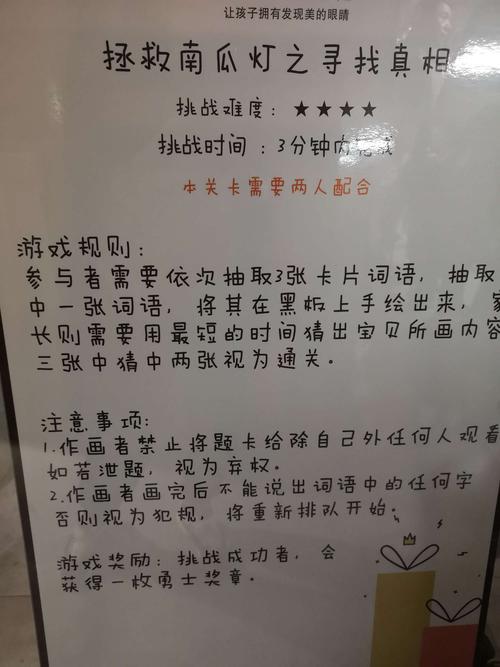 让孩子拥有发现美的眼睛
拯救南瓜灯之寻找真相
挑战难度：★★★★
挑战时间：3分钟内完成
本关卡需要两人配合
游戏规则：
参与者需要依次抽取3张卡片词语，抽取
中一张词语，将其在黑板上手绘出来，家
长则需要用最短的时间猜出宝贝所画内容
三张中猜中两张视为通关。
注意事项：
1.作画者禁止将题卡给除自己外任何人观看
如若泄题，视为弃权。
2.作画者画完后不能说出词语中的任何字
否则视为犯规，将重新排队开始。
游戏奖励：挑战成功者，会
获得一枚勇士奖章。